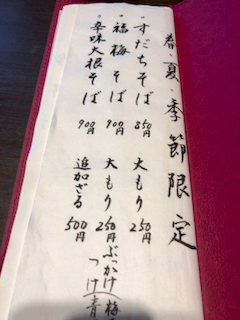 春・夏・季節限定
・すだちそば 850円 大もり 250円
・福梅そば 900円 大もり 250円 ぶっかけ(梅
・辛味大根そば 900円 追加ざる 500円 つけ(青